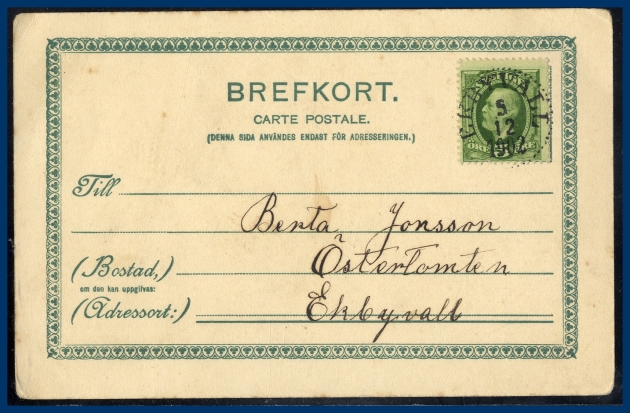 BREFKORT.
CARTE POSTALE.
(DENNA SIDA ANVÄNDES ENDAST FÖR ADRESSERINGEN.)
EKBYVALL
5
12
1902
ÖRE 5 ÖRE
Till
Berta Jonsson
(Bostad,)
Östertomten
om den kan uppgifvas:
(Adressort:)
Ekbyvall